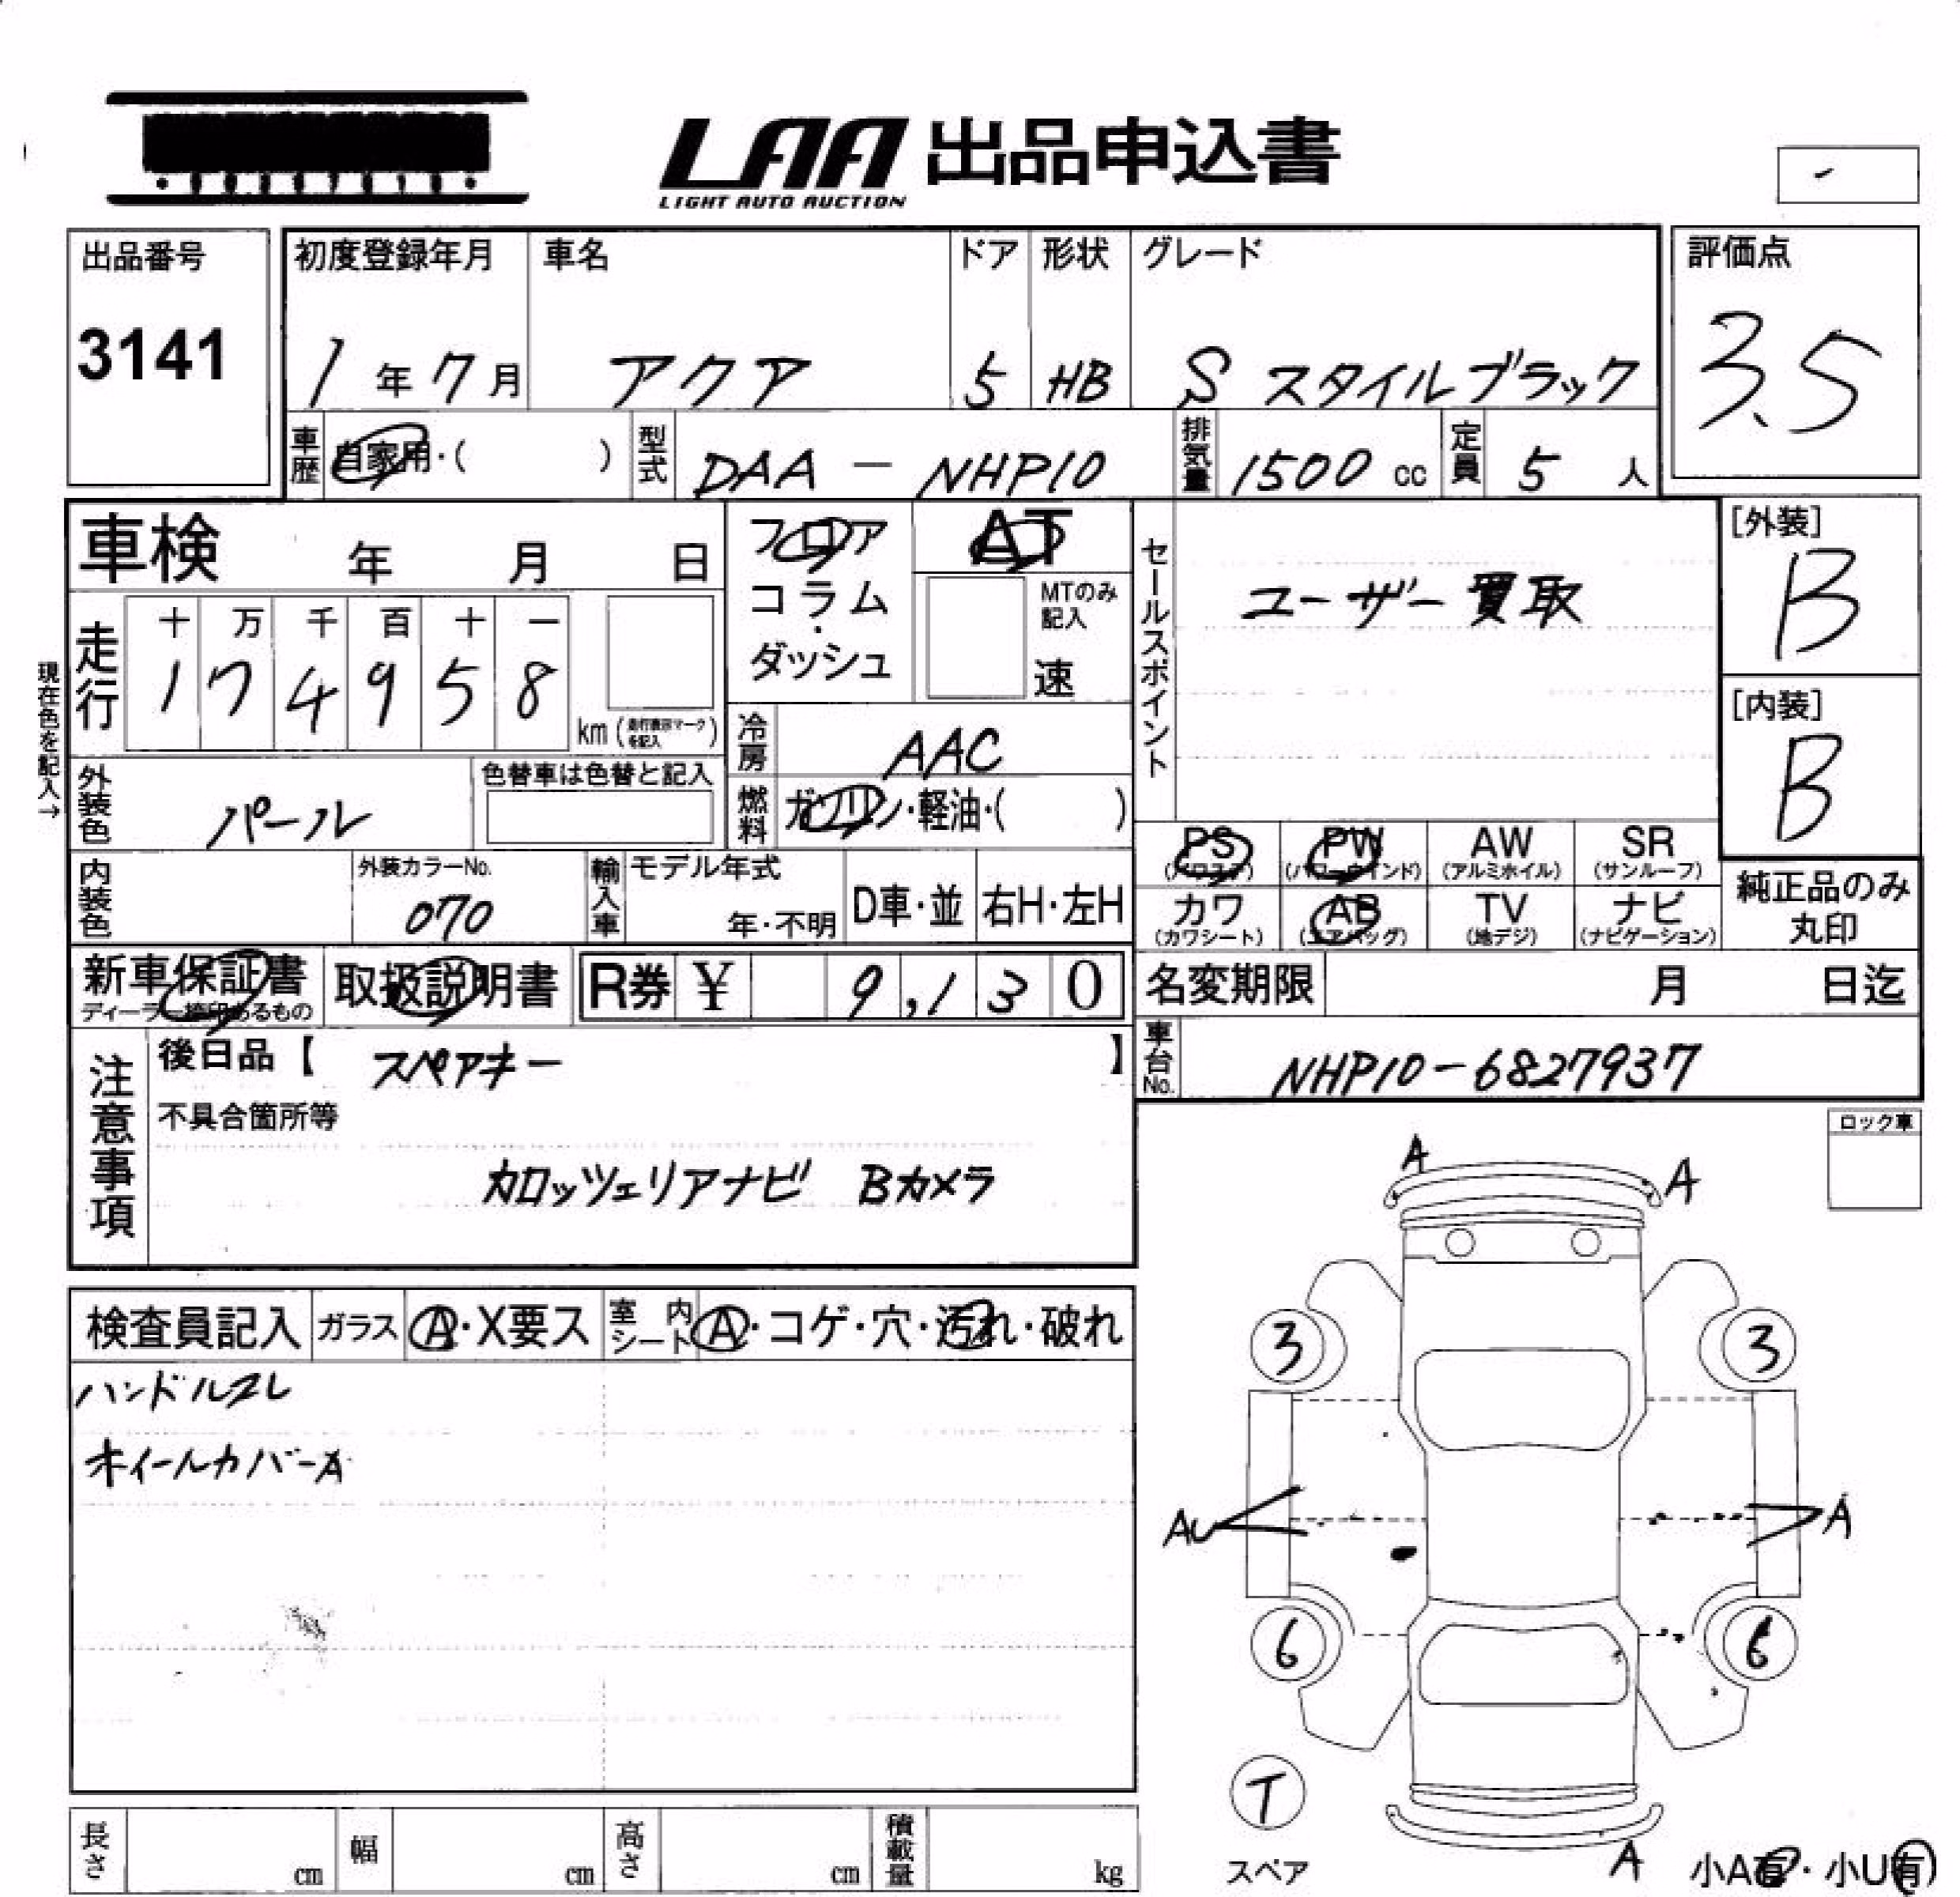 LAA 出品申込書
LIGHT AUTO AUCTION
-
出品番号 初度登録年月 車名 ドア 形状 グレード 評価点
3141 1年7月 アクア 5 HB S スタイルブラック 3.5
車歴 自家用・( ) 型式 DAA - NHP10 排気量 1500 cc 定員 5 人
車検 年 月 日 フロア AT セールスポイント [外装]
コラム・ MTのみ記入 ユーザー買取 B
走行 十 万 千 百 十 一
1 7 4 9 5 8 ダッシュ 速 [内装]
現在色を記入→ km (走行表示マークを記入) 冷房 AAC B
外装色 パール 色替車は色替と記入 燃料 ガソリン・軽油・( )
PS PW AW SR
(パワステ) (パワーウインド) (アルミホイル) (サンルーフ)
内装色 外装カラーNo. 輸入車 モデル年式 カワ AB TV ナビ 純正品のみ
070 年・不明 D車・並 右H・左H (カワシート) (エアバッグ) (地デジ) (ナビゲーション) 丸印
新車保証書 取扱説明書 R券 ¥ 9,130 名変期限 月 日迄
ディーラー捺印あるもの
注意事項 後日品【 スペアキー 】 車台No. NHP10-6827937
不具合箇所等 ロック車
カロッツェリアナビ Bカメラ
A
A
検査員記入 ガラス A・X要ス 室内シート A・コゲ・穴・汚れ・破れ
3 3
ハンドルスレ
ホイールカバーA
AU A
6 6
T
スペア
A 小A有・小U有
長さ cm 幅 cm 高さ cm 積載量 kg